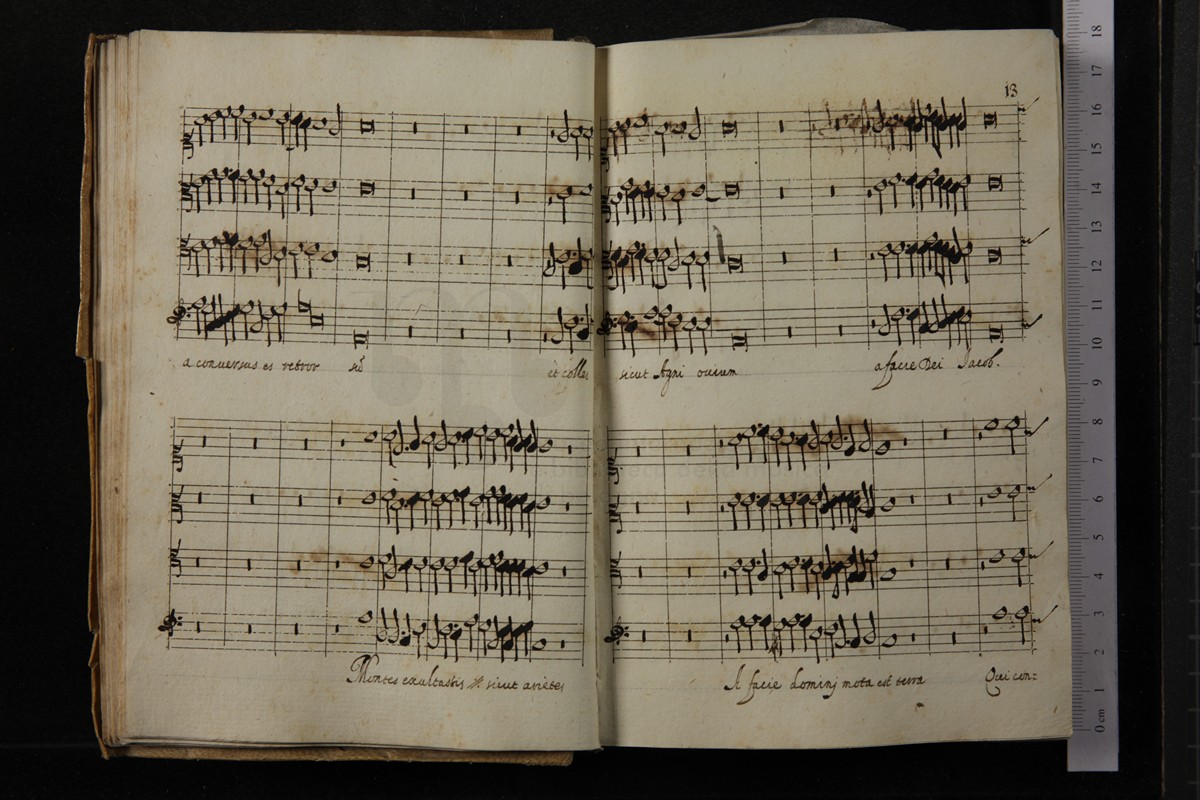 13
a conversus es retror sũ et colles sicut Agni ovium a facie Dei Jacob.
Montes exultastis sicut arietes A facie dominj mota est terra Qui con=
18
17
16
15
14
13
12
11
10
9
8
7
6
5
4
3
2
1
0 cm